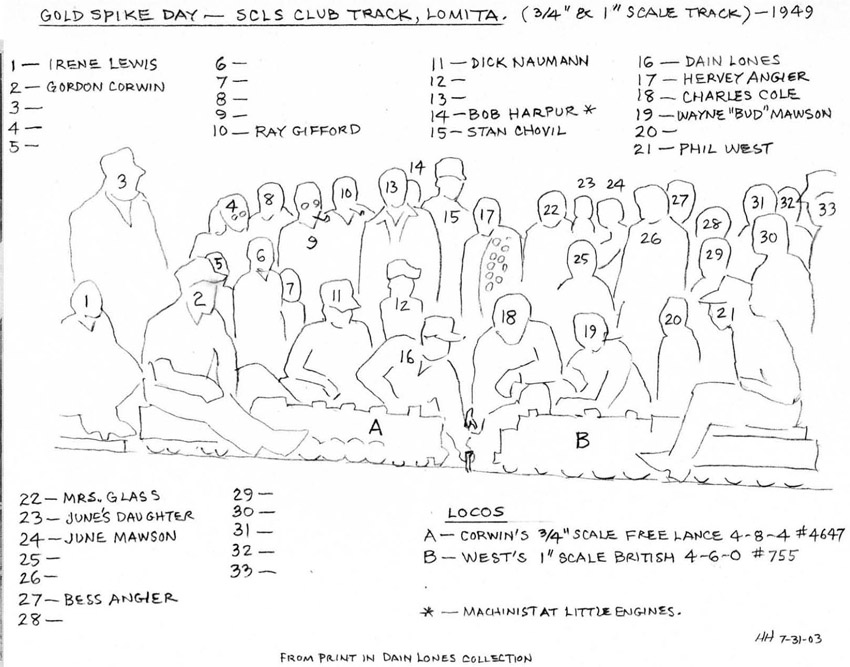 GOLD SPIKE DAY — SCLS CLUB TRACK, LOMITA. (3/4" & 1" SCALE TRACK) — 1949
1 — IRENE LEWIS
2 — GORDON CORWIN
3 —
4 —
5 —
6 —
7 —
8 —
9 —
10 — RAY GIFFORD
11 — DICK NAUMANN
12 —
13 —
14 — BOB HARPUR *
15 — STAN CHOVIL
16 — DAIN LONES
17 — HERVEY ANGIER
18 — CHARLES COLE
19 — WAYNE "BUD" MAWSON
20 —
21 — PHIL WEST
3
4
8
9
10
13
14
15
17
22
23
24
26
27
28
31
32
33
30
29
25
5
6
7
1
2
11
12
16
18
19
20
21
A
B
22 — MRS. GLASS
23 — JUNE'S DAUGHTER
24 — JUNE MAWSON
25 —
26 —
27 — BESS ANGIER
28 —
29 —
30 —
31 —
32 —
33 —
LOCOS
A — CORWIN'S 3/4" SCALE FREE LANCE 4-8-4 #4647
B — WEST'S 1" SCALE BRITISH 4-6-0 #755
* — MACHINIST AT LITTLE ENGINES.
HH 7-31-03
FROM PRINT IN DAIN LONES COLLECTION